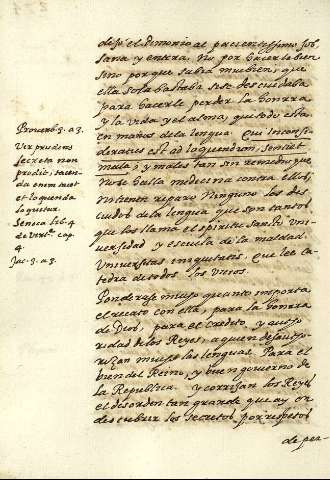 dejó el demonio al pacientissimo Job
sana y entera. No por hacerle bien
sino porque sabía mui bien, que
ella sola bastaba si se descuidaba
para hacerle perder la honrra
y la vida y el alma, que todo esta
en manos de la lengua. Qui inconsi
deratus est ad loquendum sentiet
mala; y males tan sin remedio, que
no se halla medicina contra ellos,
no tienen reparo ninguno los des
cuidos de la lengua que son tantos,
que los llama el espiritu Santo, Uni
versidad y escuela de la maldad.
Universitas iniquitatis. Que lee ca
tedra de todos los vicios.
Ponderase mucho quanto importa
el recato con ella, para la honrra
de Dios, para el credito, y auto
ridad de los Reyes, a quien desauto
rizan mucho las lenguas. Para el
bien del Reino, y buen govierno de
la Republica. y corrijan los Reyes
el desorden tan grande que ay en
descubrir los secretos, por respetos
de per-
Proverb. 3. a 3.
Vir prudens
secreta non
prodit; tacen
da enim tacet
et loquenda
loquitur.
Seneca lib. 4
de virt. cap
4.
Jac. 3. a 3.